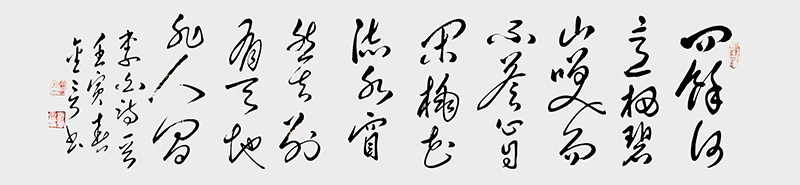 问馀何
意栖碧
山咲而
不答心自
闲桃花
流水窅
然去别
有天地
非人间
李白诗
壬寅春
书